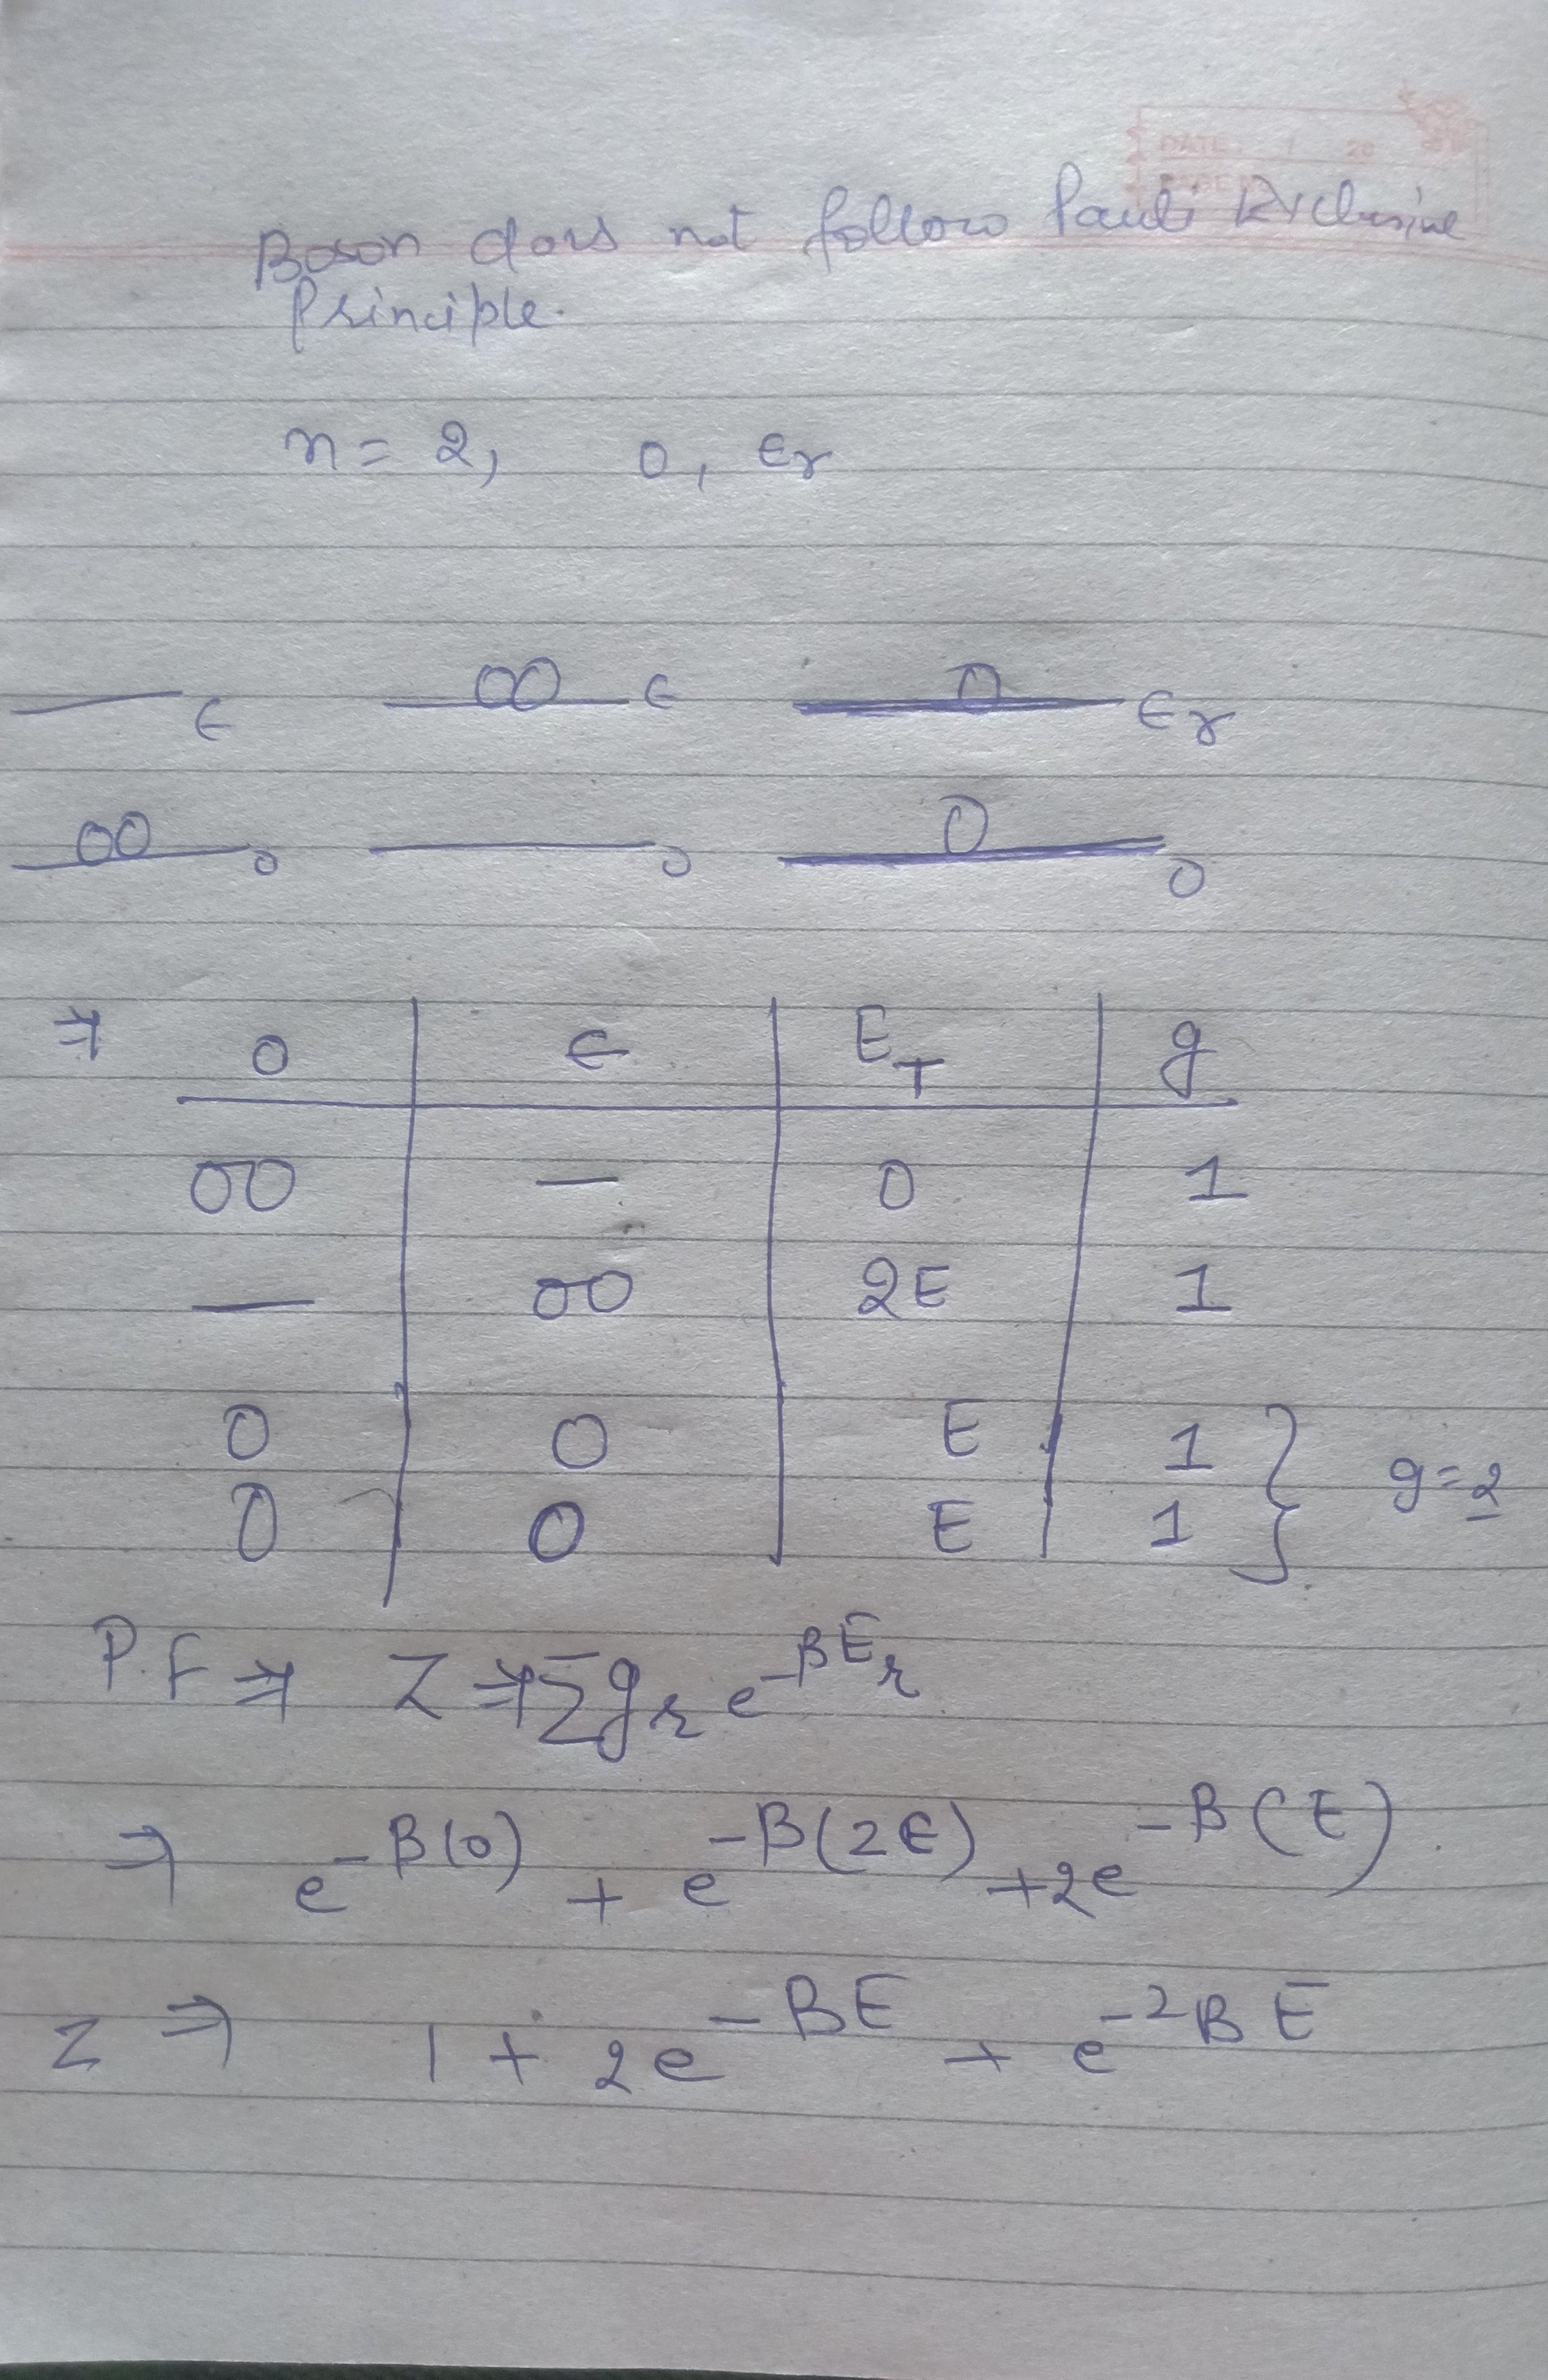 DATE 20
Boson dors not follow Pauli Exclusive
Principle.
n = 2, 0, ϵr
— ϵ OO ϵ O ϵr
OO 0 — 0 O 0
⇒ 0 | ϵ | E_T | g
OO | — | 0 | 1
— | OO | 2E | 1
O | O | E | 1
O | O | E | 1 } g=2
P.F ⇒ Z ⇒ Σ g_r e^{-βE_r}
⇒ e^{-β(0)} + e^{-β(2ϵ)} + 2e^{-β(E)}.
Z ⇒ 1 + 2e^{-βE} + e^{-2βE}